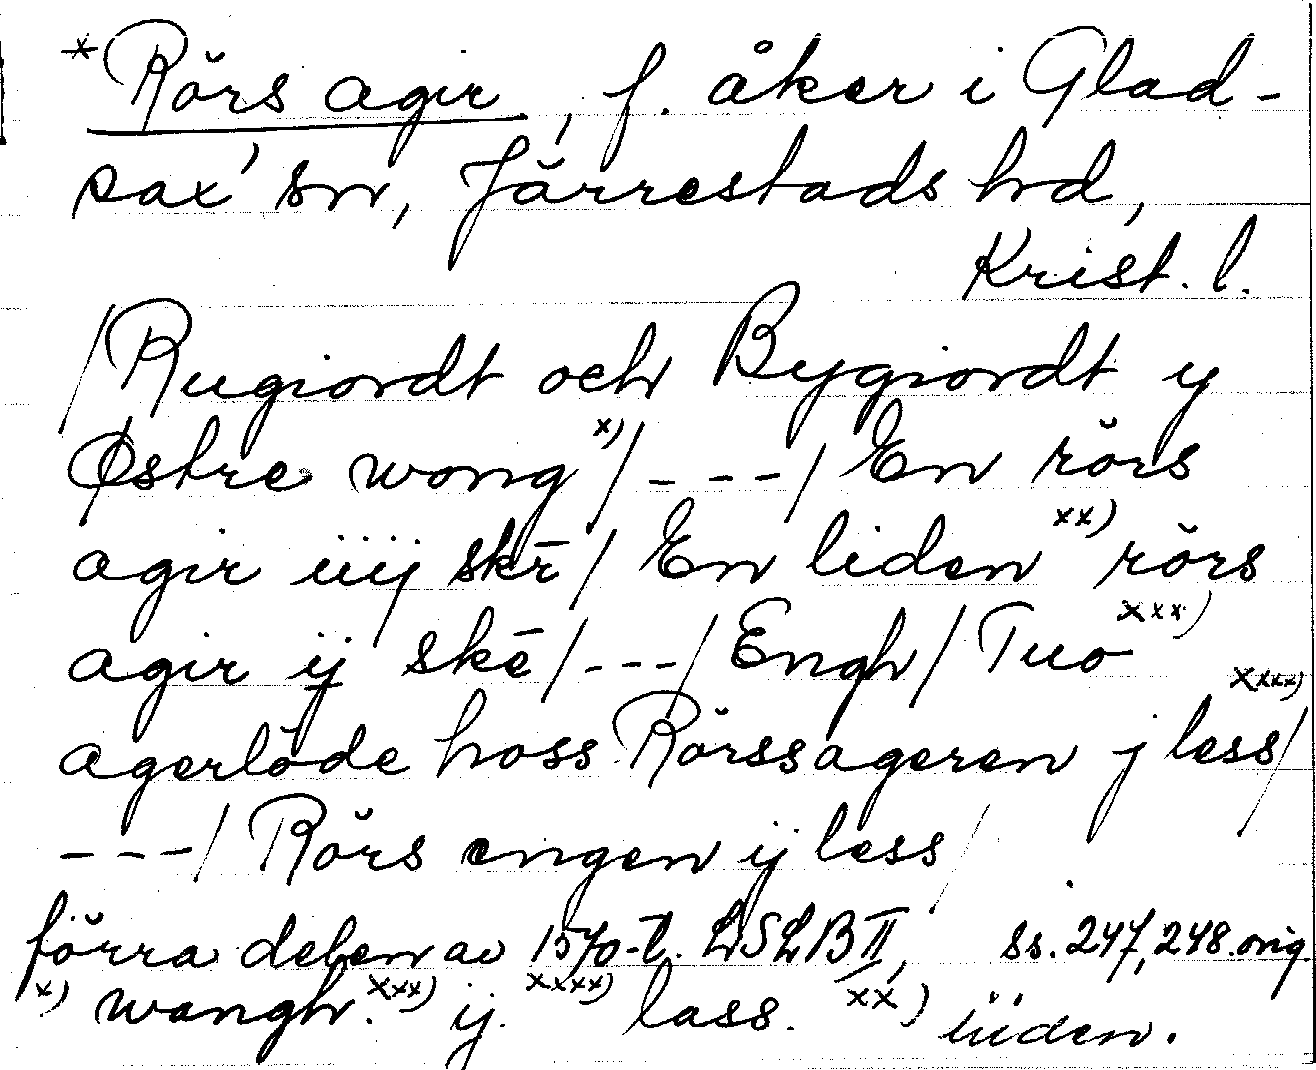 *Rörs agir, f. åker i Glad-
sax' sn, Järrestads hd,
Krist. l.
/Rugiordt och Bygiordt y
Østre wong x)/---/ En rörs
agir iiij skē/ En liden xx) rörs
agir ij skē/---/Engh/Tuo xxx)
agerlöde hoss Rörssageren j less xxxx)/
---/ Rörs engen ij less/
förra delen av 1570-t. LSLB II, ss. 247, 248. orig.
x) wangh. xxx) ij. xxxx) lass. xx) iiiden.